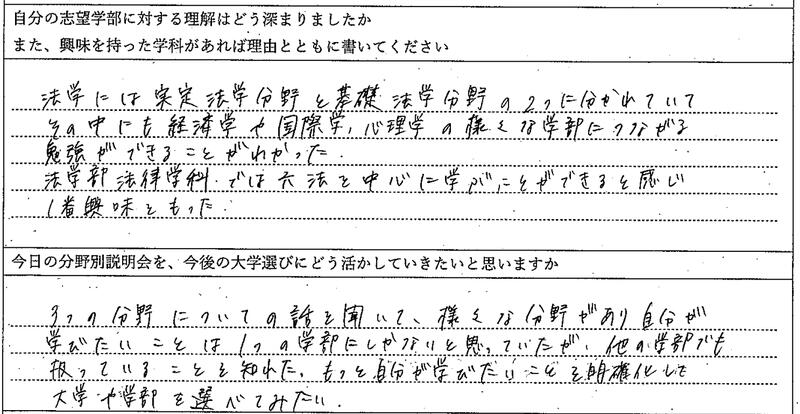 自分の志望学部に対する理解はどう深まりましたか
また、興味を持った学科があれば理由とともに書いてください
法学には実定法学分野と基礎法学分野の2つに分かれていて
その中にも経済学や国際学、心理学の様々な学部につながる
勉強ができることがわかった.
法学部法律学科では六法を中心に学ぶことができると感じ
1番興味をもった.
今日の分野別説明会を、今後の大学選びにどう活かしていきたいと思いますか
3つの分野についての話を聞いて、様々な分野があり自分が
学びたいことは1つの学部にしかないと思っていたが、他の学部でも
扱っていることを知れた。もっと自分が学びたいことを明確化して
大学や学部を選べてみたい.